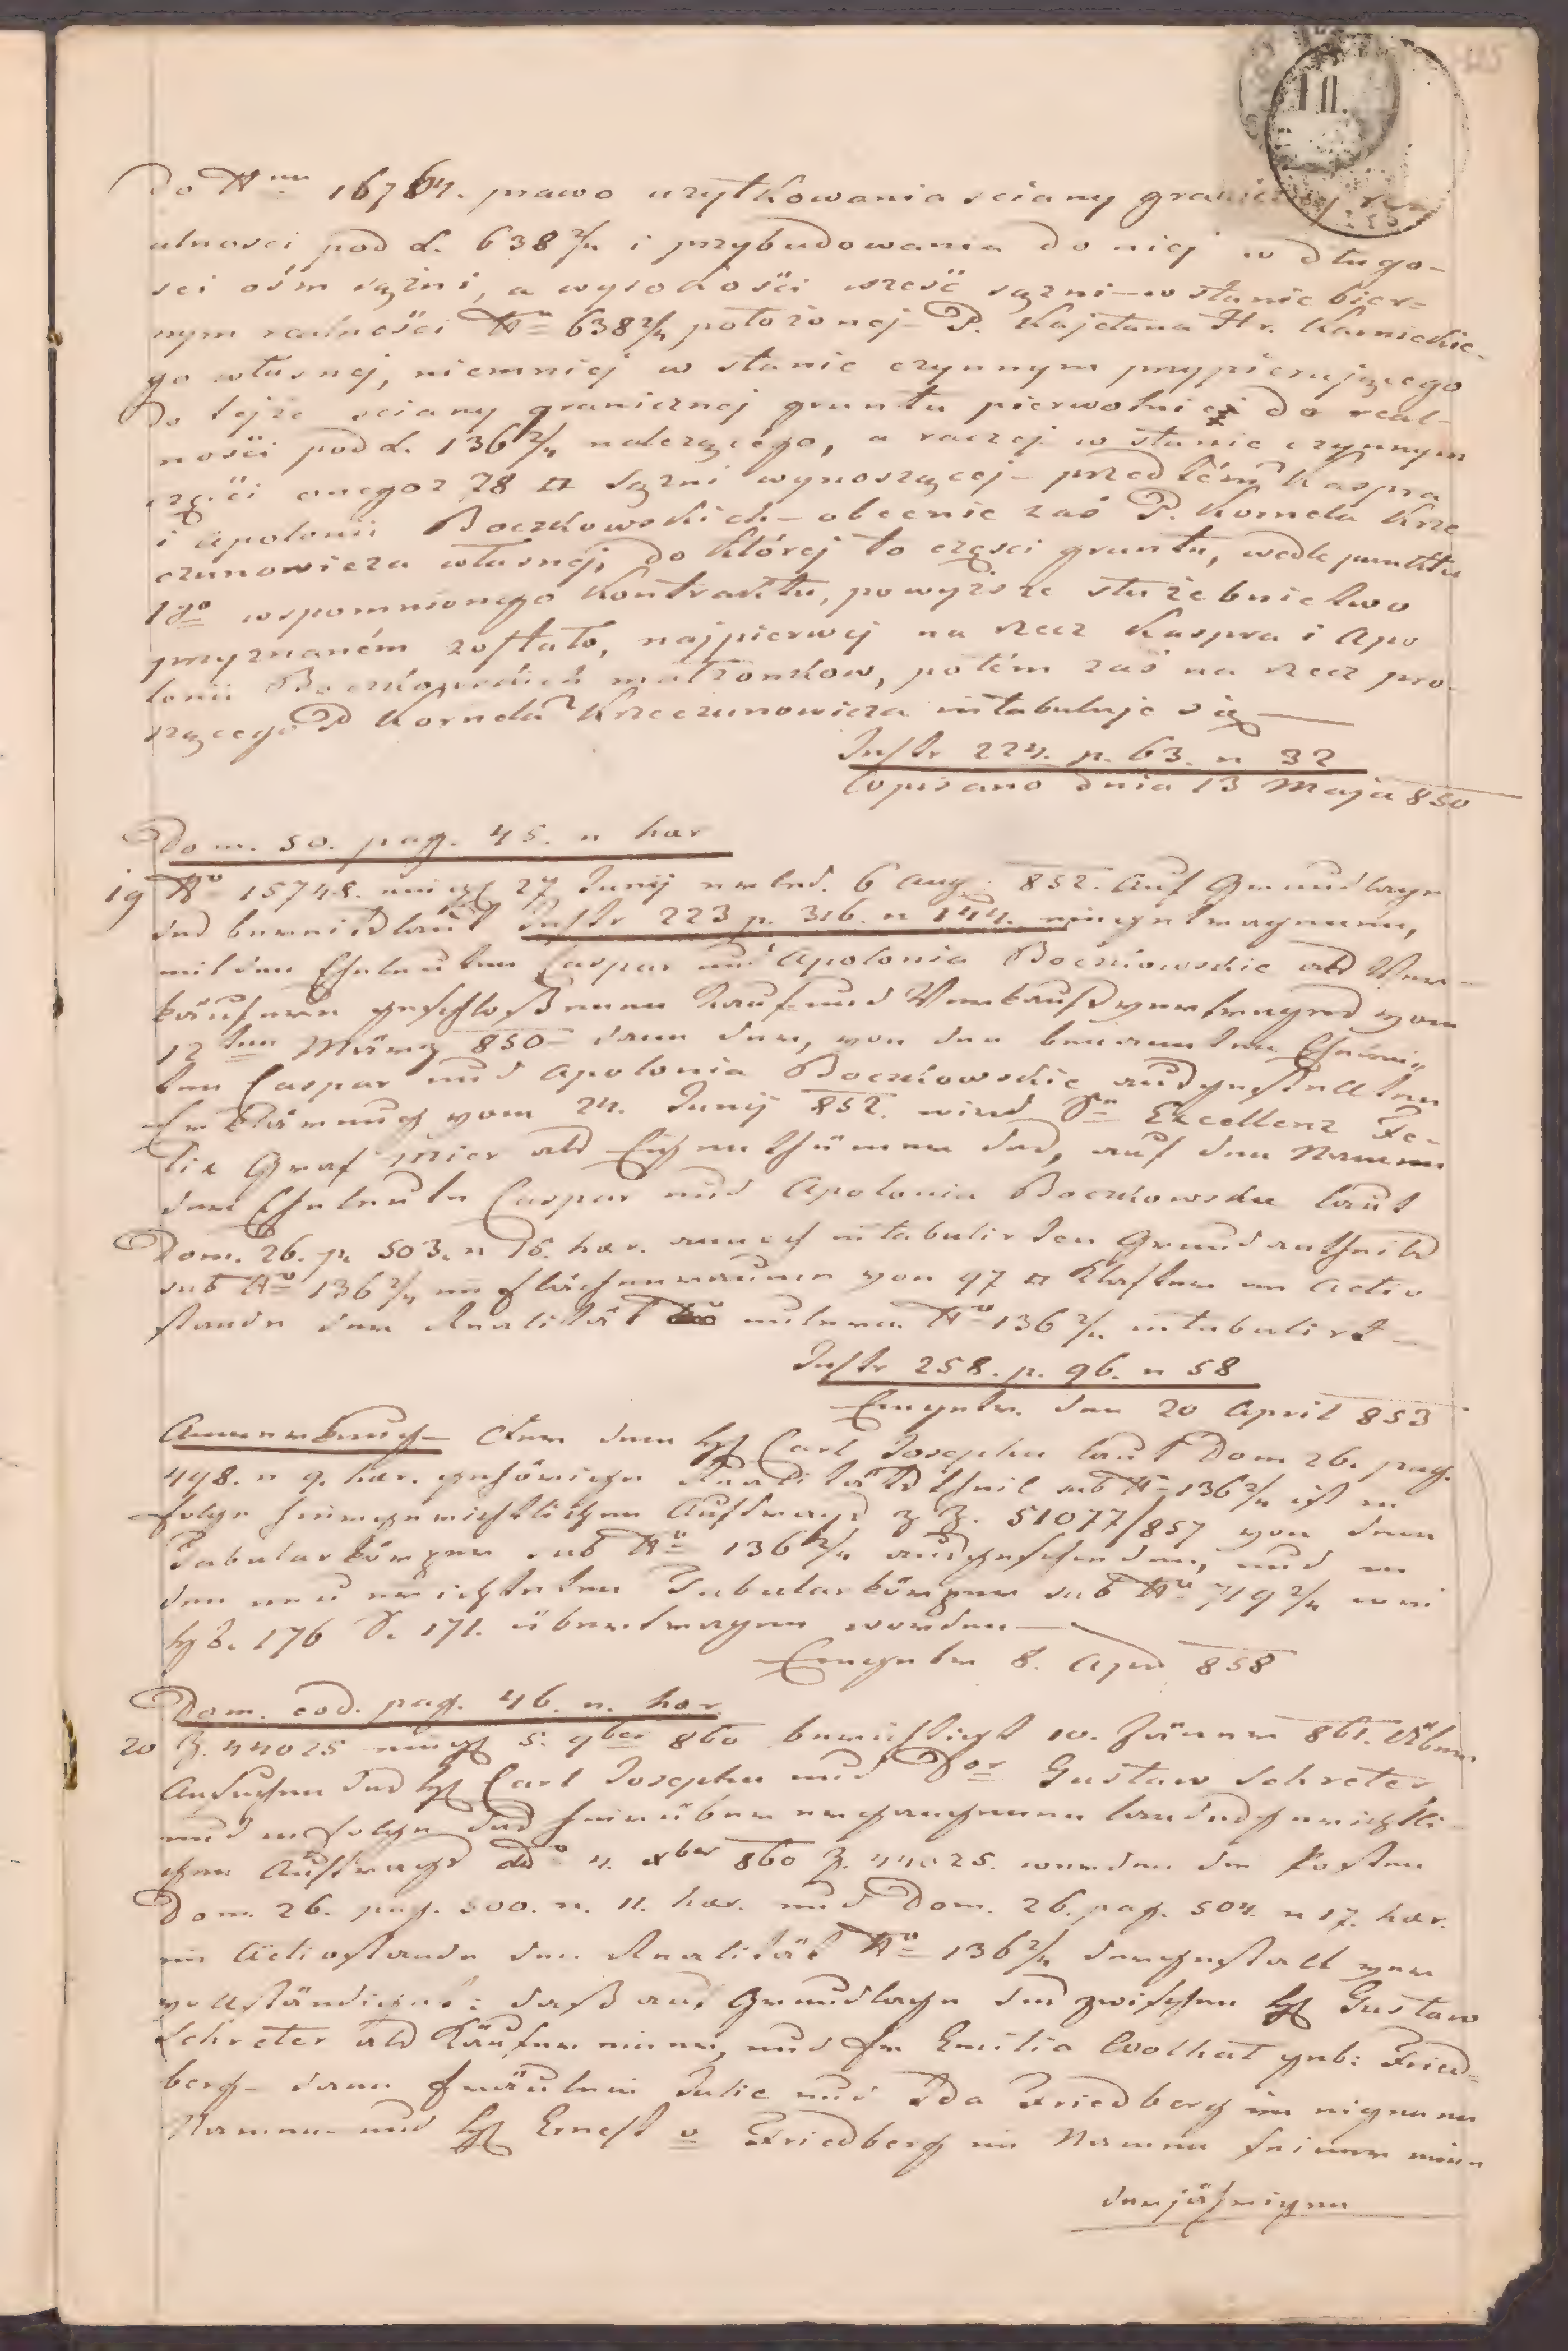 Do N<sup>ru</sup> 16784. prawo użytkowania sciany granicznej re
alnosci pod L. 638 2/4 i przybudowania do niej w długo-
sci ośm sążni, a wysokości sześć sążni – w stanie bier=
nym realności N° 638 2/4 położonej – P. Kajetana Hr. Karnickie-
go własnej, niemniej w stanie czynnym przypierającego
do tejże sciany granicznej gruntu pierwotnie do real-
ności pod L. 136 2/4 należącego, a raczej w stanie czynnym
części onegoż 78 □ sążni wynoszącej – przedtém Kaspra
i Apolonii Boczkowskich – obecnie zaś P. Kornela Krze
czunowicza własnej, do której to części gruntu, wedle punktu
18° wspomnionego Kontraktu, powyższe służebnictwo
przyznaném zostało, najpierwej na rzecz Kaspra i Apo
lonii Boczkowskich małżonkow, potém zaś na rzecz pro-
szącego P Kornela Krzeczunowicza intabuluje się —
Instr 224. p. 63. n 32
Wpisano dnia 13 Maja 850
Dom. 50. pag. 45. n hær
19 N° 15748. eingel 27 Junij erled. 6 Aug. 852. Auf Grundlage
des bereits laut Instr 223 p. 316. n 144. eingetragenen,
mit den Eheleuten Caspar und Apolonia Boczkowskie als Ver-
käufern geschloßenen Kauf und Verkaufsvertrages vom
12ten März 850 – dann der, von den benannten Eheleu„
ten Caspar und Apolonia Boczkowskie ausgestellten
Erklärung vom 24. Junij 852. wird Sr Excellenz Fe-
lix Graf Mier als Eigenthümer des, auf den Namen
der Eheleute Caspar und Apolonia Boczkowskie laut
Dom. 26. p. 503. n 15. hær. annoch intabulirten Grundantheils
sub N° 136 2/4 im Flächenraume von 97 □ Klafter im Activ
stande der Realität unterm N° 136 2/4 intabulirt —
Instr 258. p. 96. n 58
Eingetr. den 20 April 853
Anmerkung – Der dem H Carl Josephu laut Dom 26. pag.
498. n 9. hær. gehörige Realitätstheil sub N° 136 2/4 ist in
folge hiergerichtlichen Auftrags z Z. 51077/857 von dem
Tabularkörper sub N° 136 2/4 ausgeschieden, und in
den neu errichteten Tabularkörper sub N° 719 2/4
HB. 176 S. 171. übertragen worden —
Eingetr 8. Apr 858
Dom. eod. pag. 46. n. hær.
20 Z. 44025 eingel 5. 9ber 860 berichtigt 10. Jänner 861. Über
Ansuchen des H Carl Josephu und Dor Gustaw Schreter,
und in folge des hierüber ergangenen landesgerichtli-
chen Auftrags dd° 4. xber 860 Z. 44025. werden die Posten
Dom. 26. pag. 500. n. 11. hær. und Dom. 26. pag. 504. n 17. hær.
im Activstande der Realität N° 136 2/4 dergestalt ver
vollständiget: daß auf Grundlage des zwischen H Gustaw
Schreter als Käufer einer, und Fr Emilia Wolhat geb: Fried=
berg – dann Fräulein Julie und Ida Friedberg im eigenen
Namen und H Ernest v Friedberg im Namen seiner min=
derjährigen